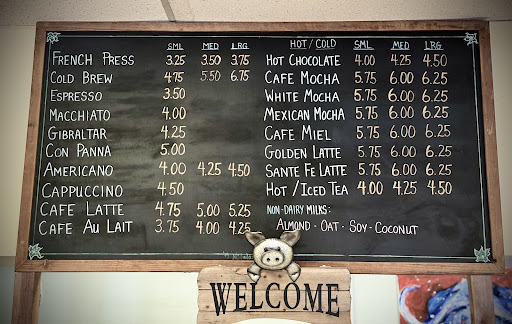 SML MED LRG
FRENCH PRESS 3.25 3.50 3.75
COLD BREW 4.75 5.50 6.75
ESPRESSO 3.50
MACCHIATO 4.00
GIBRALTAR 4.25
CON PANNA 5.00
AMERICANO 4.00 4.25 4.50
CAPPUCCINO 4.50
CAFE LATTE 4.75 5.00 5.25
CAFE AU LAIT 3.75 4.00 4.25
HOT/COLD SML MED LRG
HOT CHOCOLATE 4.00 4.25 4.50
CAFE MOCHA 5.75 6.00 6.25
WHITE MOCHA 5.75 6.00 6.25
MEXICAN MOCHA 5.75 6.00 6.25
CAFE MIEL 5.75 6.00 6.25
GOLDEN LATTE 5.75 6.00 6.25
SANTE FE LATTE 5.75 6.00 6.25
HOT/ICED TEA 4.00 4.25 4.50
NON-DAIRY MILKS:
ALMOND · OAT · SOY · COCONUT
WELCOME